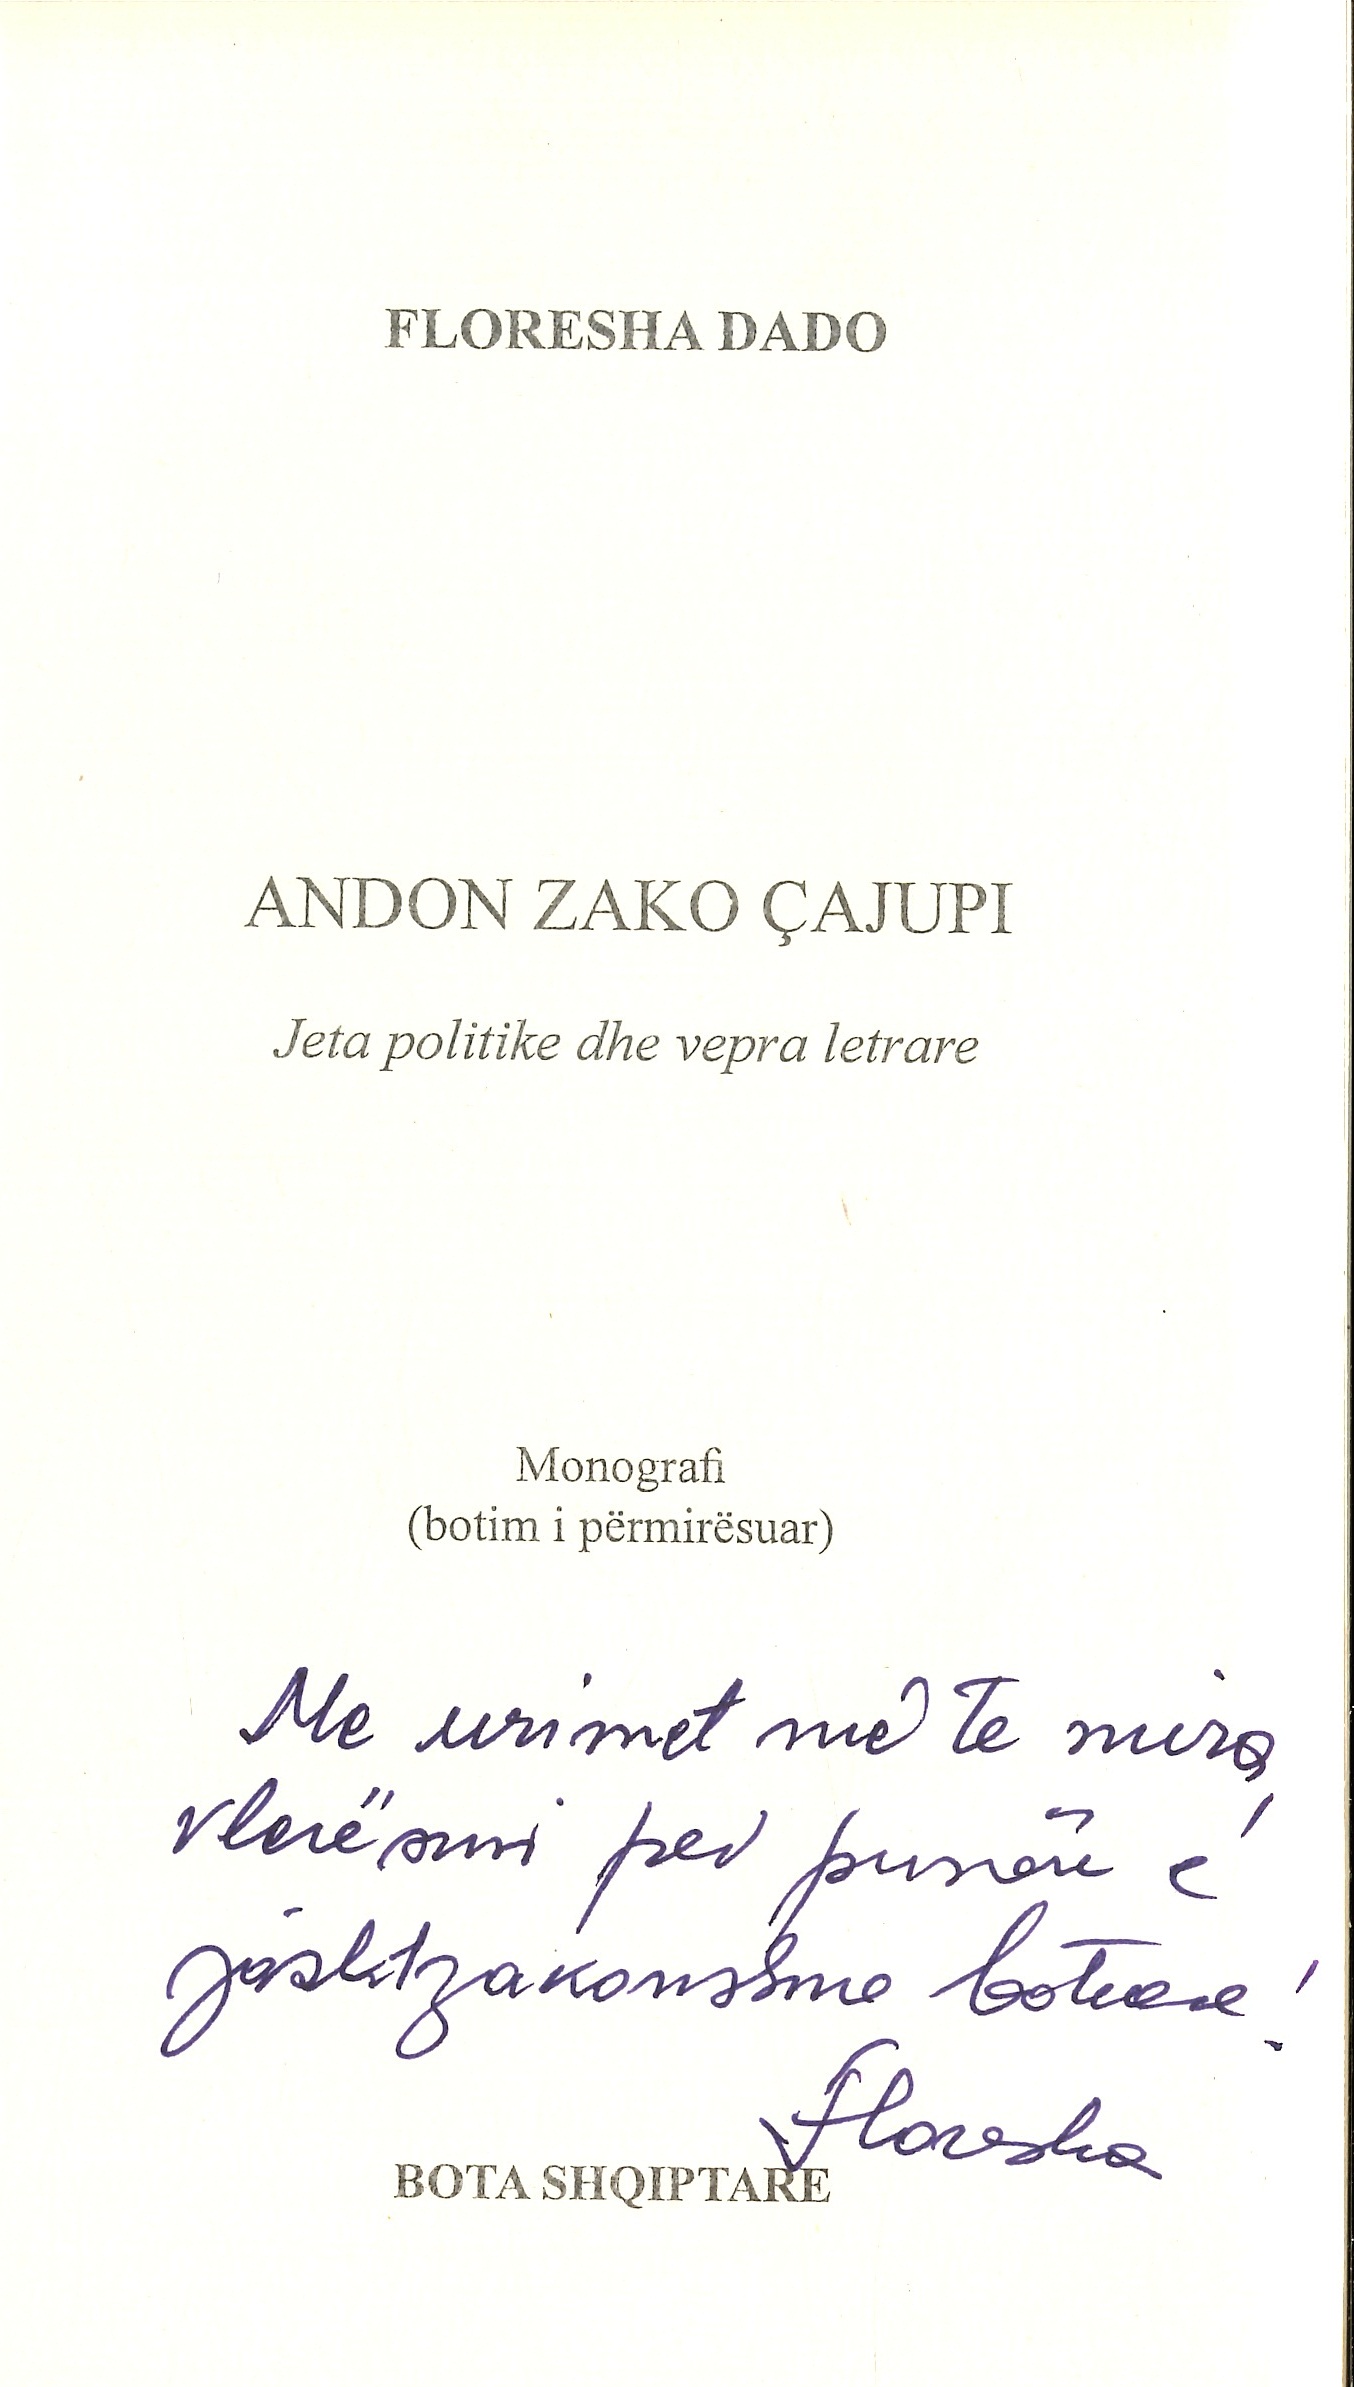 FLORESHA DADO
ANDON ZAKO ÇAJUPI
Jeta politike dhe vepra letrare
Monografi
(botim i përmirësuar)
Me urimet më te mira,
vlerësimi për punën e
jashtzakonshme botuese!
Floresha
BOTA SHQIPTARE